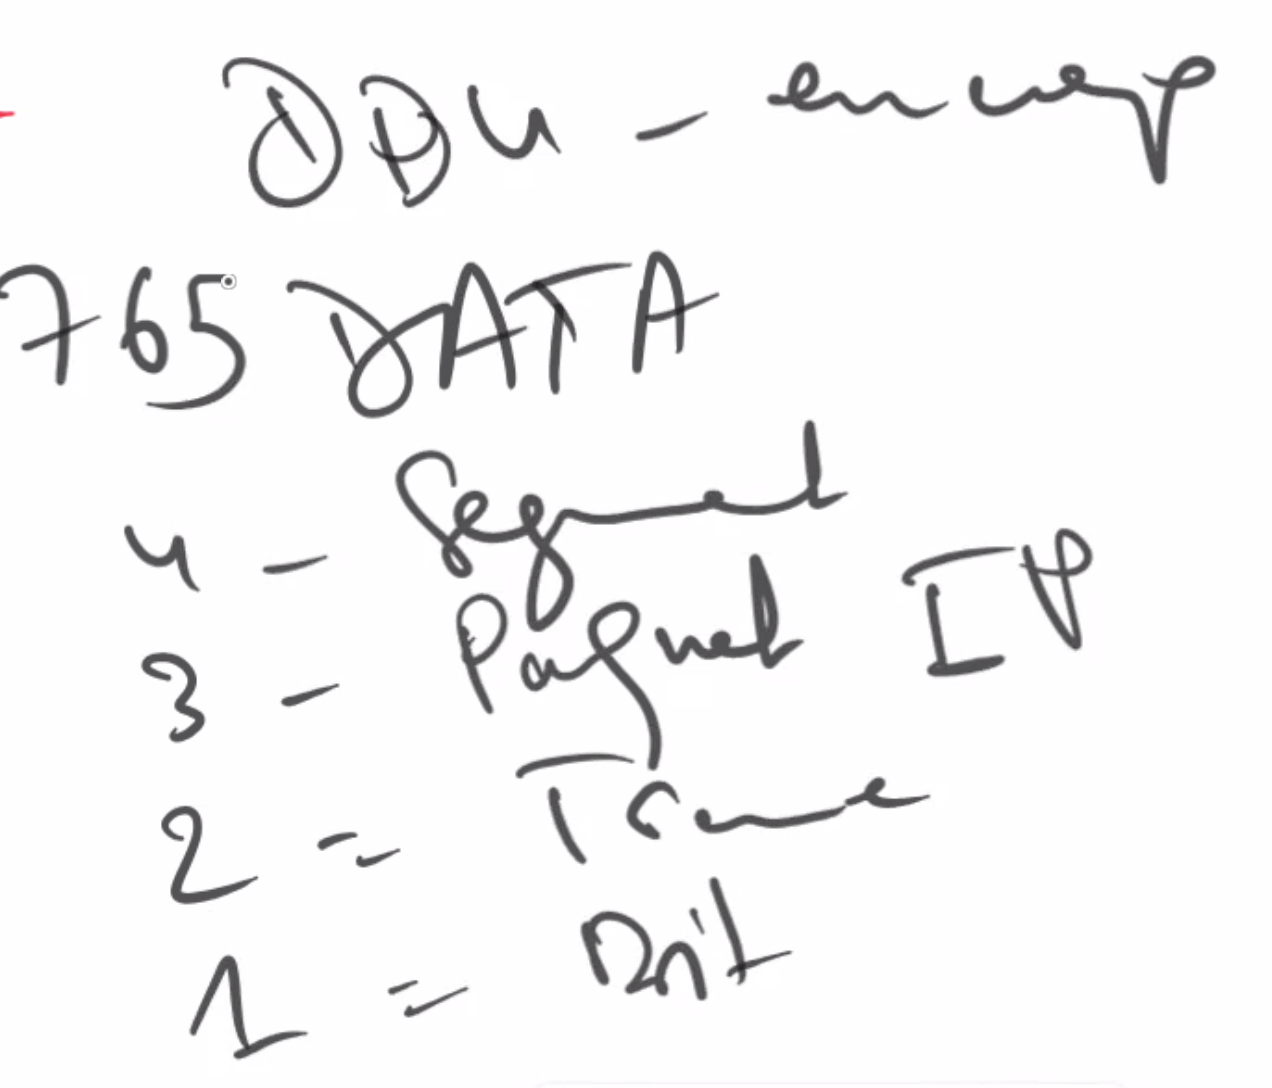 PDU - encap
765 DATA
4 - Segment
3 - Paquet IP
2 = Trame
1 = Bit